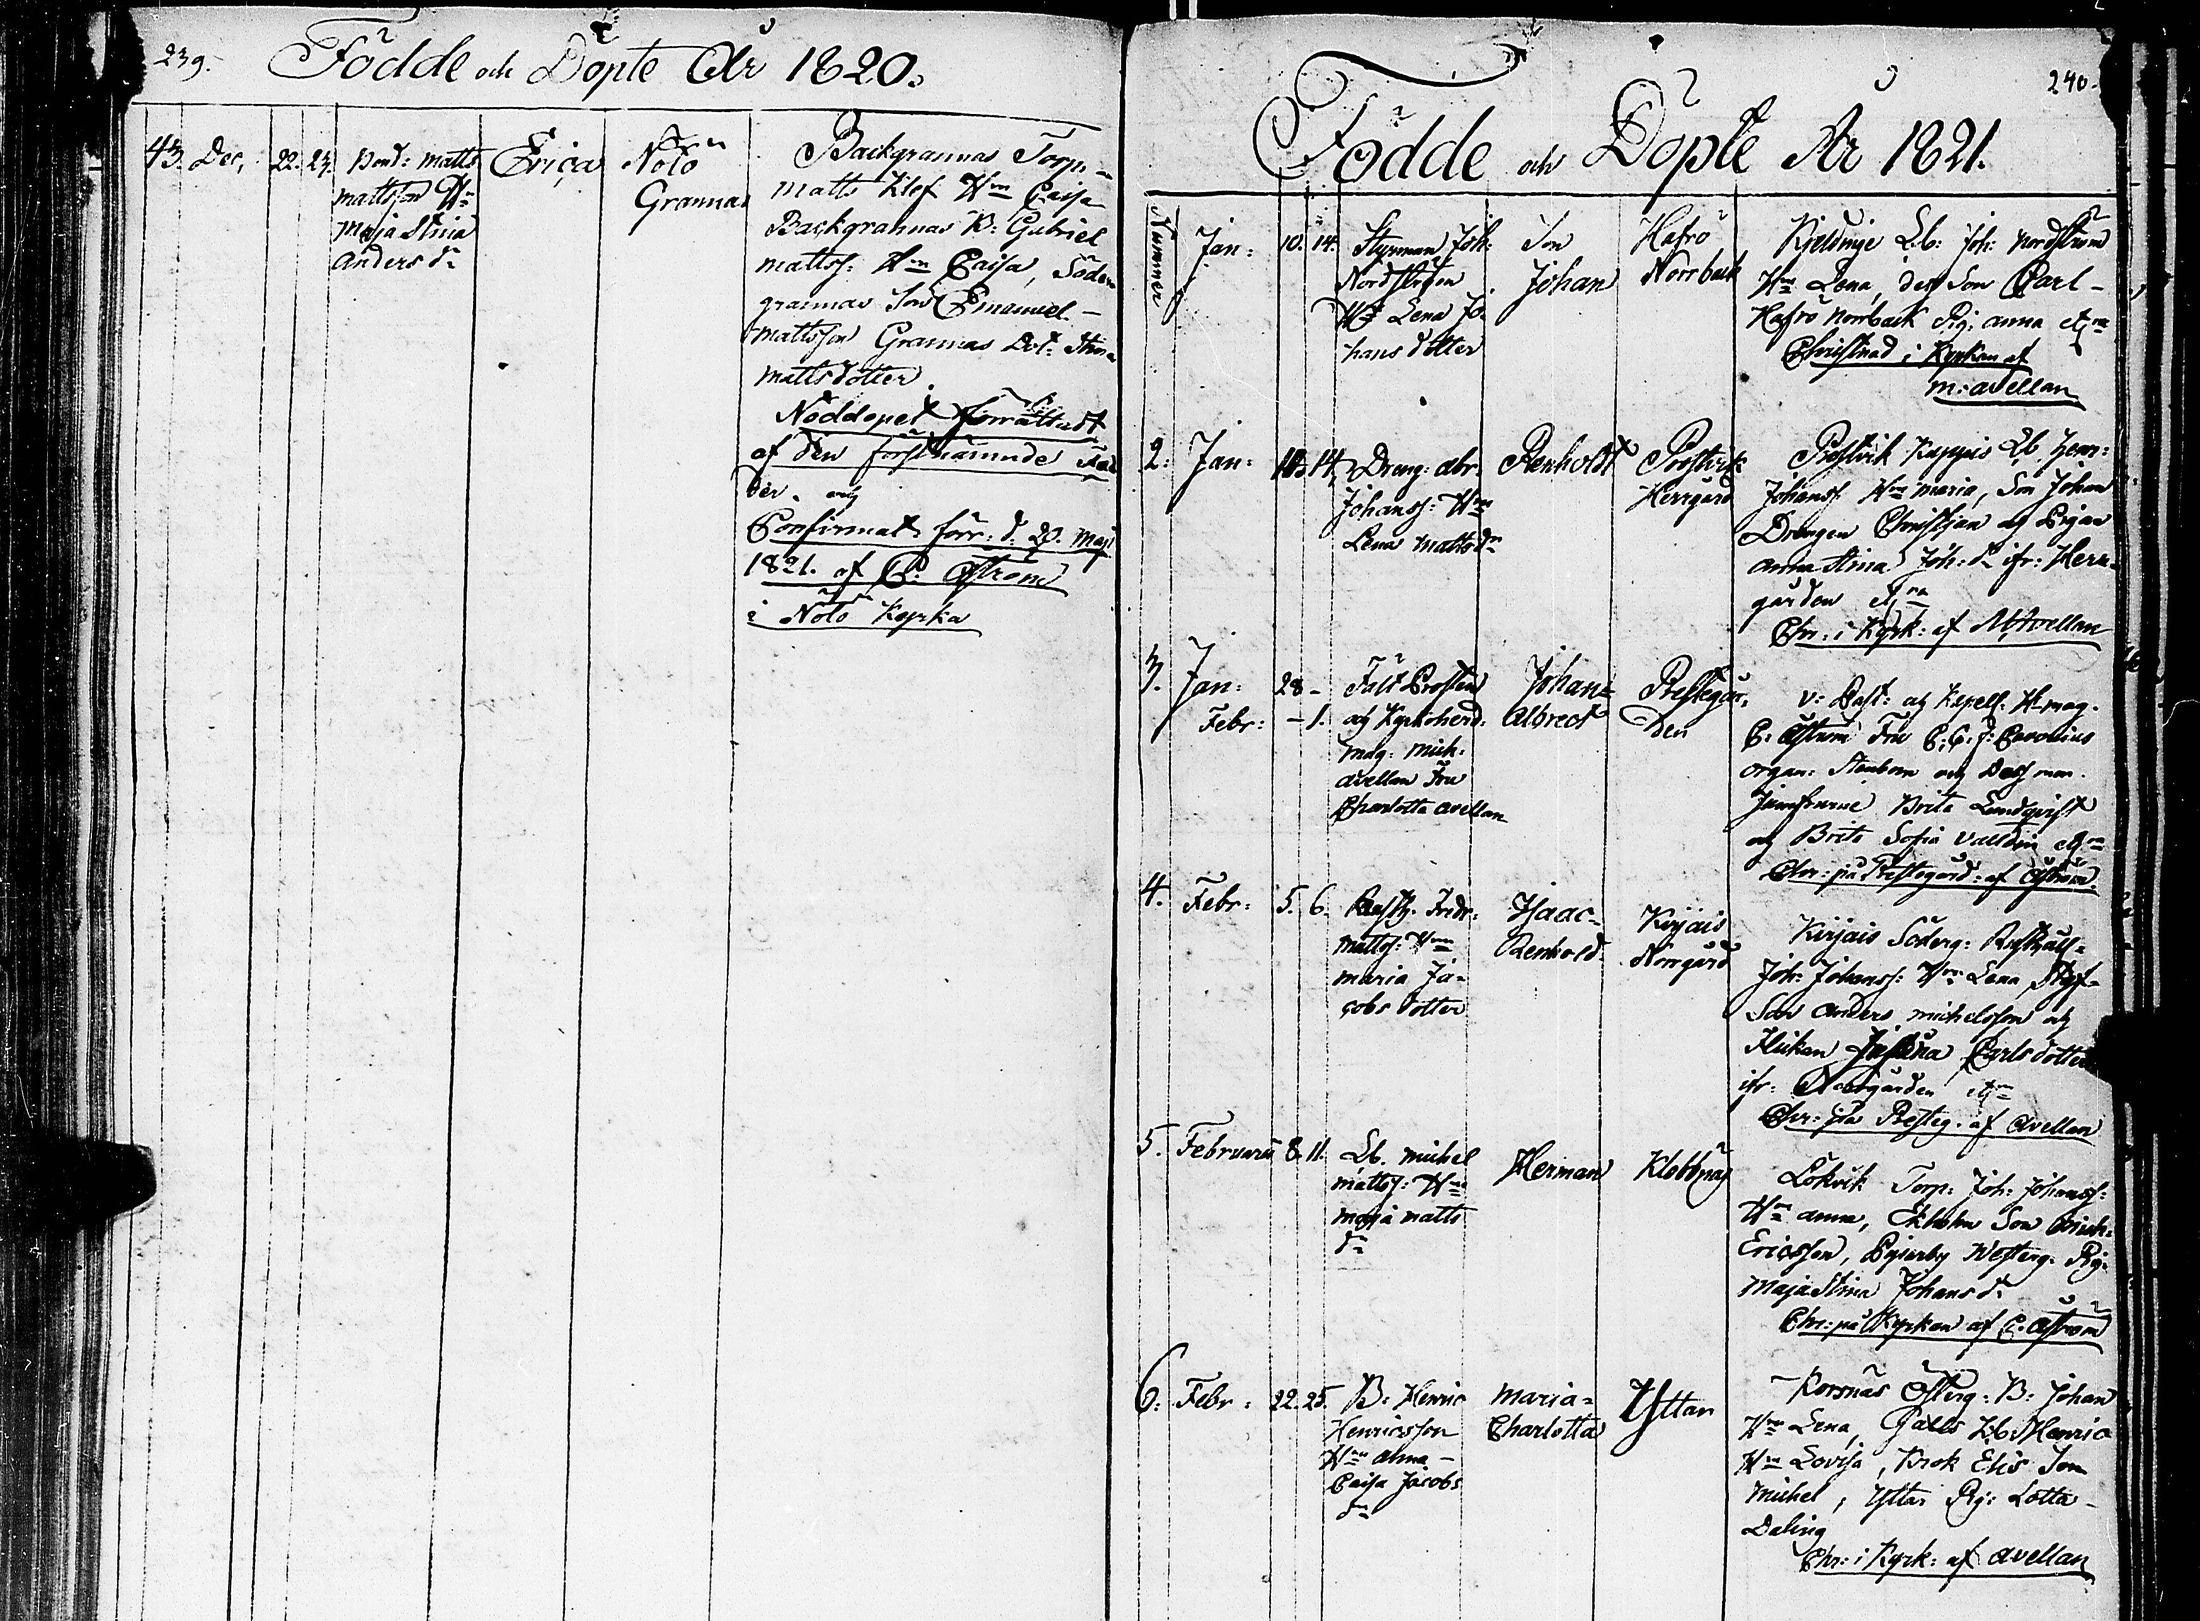 239.
Födde och Döpte År 1820.
43. Dec, 22. 23. Bond: Matts
Mattsson H:n
Maja Stina
Anders d:r
Erica
Nötö
Grannas
Backgrannas Torp.
Matts Klef H:n Caisa
Backgrannas B: Gabriel
Mattss: H:n Caisa, Söder
grannas Son Emanuel
Mattsson Grannas Dot: Stina
Mattsdotter
Nöddopet förrättadt
af den förstnämnde
der. och
Confirmat. förr: d: 20. Maji
1821. af C: Åström
i Nötö Kyrka
240.
Födde och Döpte År 1821.
Nummer
Jan: 10. 14. Styrman Joh:
Nordström
H:n Lena Jo-
hans dotter
Son
Johan
Hafrö
Norrback
Kjeldinge Lb: Joh: Nordström
H:n Lena, dess Son Carl
Hafrö Norrback Pig: Anna etc
Christnad i Kyrkan af
M: Avellan
2. Jan: 10. 14. Dräng: Abr.
Johanss: H:n
Lena Mattsd:r
Renholdt
Prostvik
Herrgård
Prostvik Kuppis Lb Henr:
Johanss. H:n Maria, Son Johan
Drängen Christian och Pigan
Anna Stina Joh: d:r ifr: Herr-
gården etc
Chr: i Kyrk: af M: Avellan
3. Jan: 28 -
Febr: - 1.
Fält Prosten
och Kyrkoherd.
Mag. Mich.
Avellan Fru
Charlotta Avellan
Johan
Albrect
Prestegår-
den
V: Past: och Kapell. H. Mag.
C: Åström Fru C. G. J: Cavonius
Organ: Stenbom och Dess mor.
Jungfrurne Brita Lundqvist
och Brita Sofia Valldin etc
Chr: på Prestegård: af Åström.
4. Febr: 5. 6. Rusth. Fredr:
Mattss: H:n
Maria Ja-
cobs dotter
Isaac
Renhold.
Kirjais
Norrgård
Kirjais Söderg: Rusthåll-
Joh: Johanss: H:n Lena, Styf-
Son Anders Michelsson och
Flickan Carlsdotter
ifr: Norrgården etc
Chr: på Presteg. af Avellan
5. Februarii 8. 11. Lb. Michel
Mattss: H:n
Maja Matts
d:r
Herman
Klobbnäs
Lökvik Torp: Joh: Johanss:
H:n Anna, Ekholm Son Mich:
Ericsson, Bysterby Westerg. Pig.
Maja Stina Johansd:r
Chr: på Kyrkan af C: Åström
6. Febr: 22. 25. B: Henric
Henricsson
H:n Anna
Caisa Jacobs
d:r
Maria
Charlotta
Yttar
Korsnäs Österg: B: Johan
H:n Lena, Galts Lb Henric
H:n Lovisa, Brok Elis Son
Michel, Yttar Pig: Lotta
Daling
Chr: i Kyrk: af Avellan